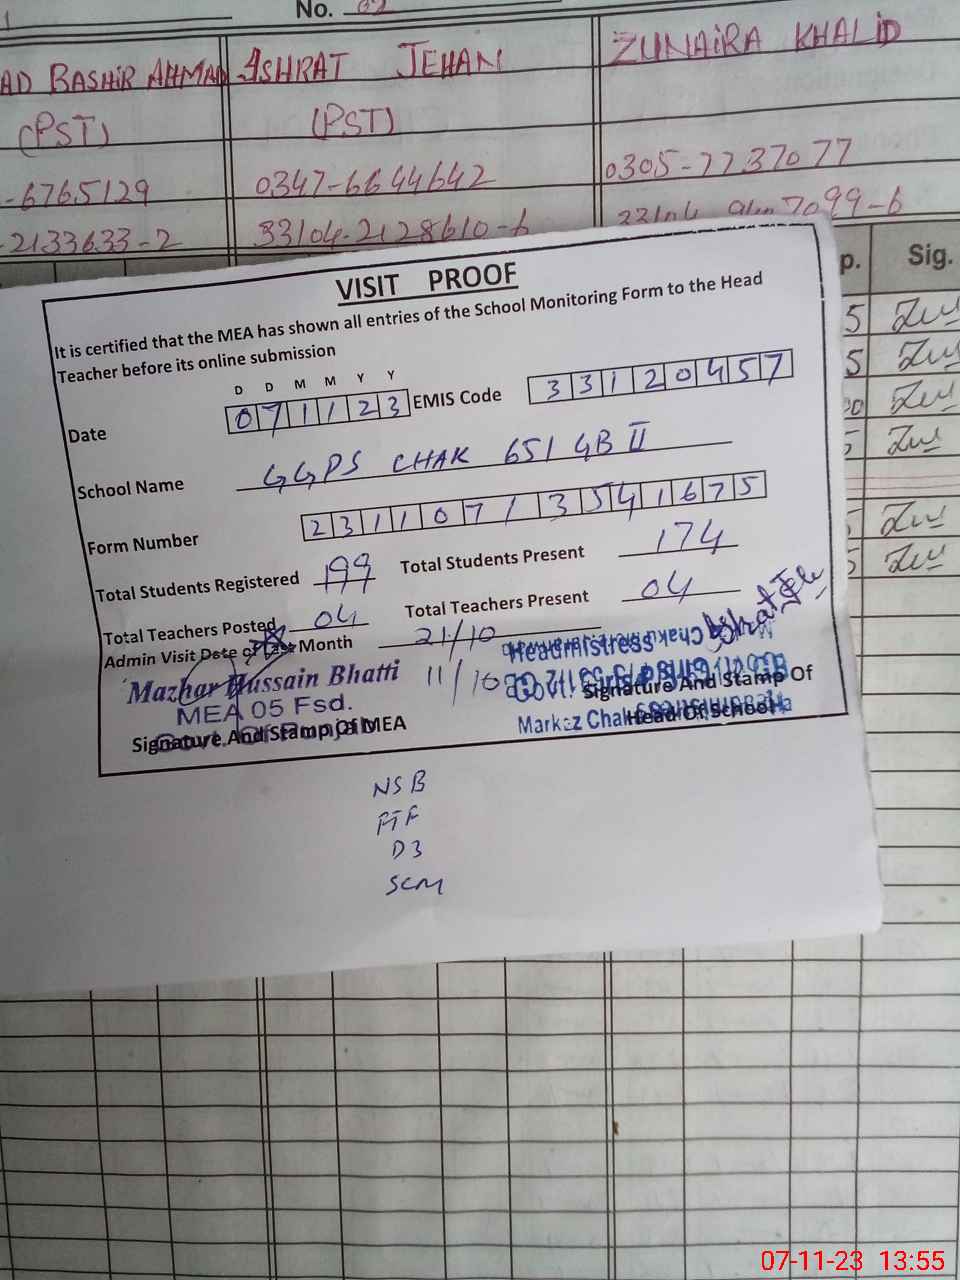 No. 02
AD BASHIR AHMAD ISHRAT JEHAN ZUNAIRA KHALID
(PST) (PST)
-6765129 0347-6644642 0305-7737077
-2133633-2 33104-2128610-6 7099-6
p. Sig.
VISIT PROOF
It is certified that the MEA has shown all entries of the School Monitoring Form to the Head
Teacher before its online submission
D D M M Y Y
Date 071123 EMIS Code 33120457
School Name GGPS CHAK 651 GB II
Form Number 231107/3541675
Total Students Registered 199 Total Students Present 174
Total Teachers Posted 04 Total Teachers Present 04
Admin Visit Date of Last Month 21/10
11/10
Headmistress
Mazhar Hussain Bhatti
MEA 05 Fsd.
Govt. Of Punjab
Signature And Stamp Of MEA
Signature And Stamp Of
Markaz Chak
Head Of School
NSB
FTF
D3
SCM
07-11-23 13:55